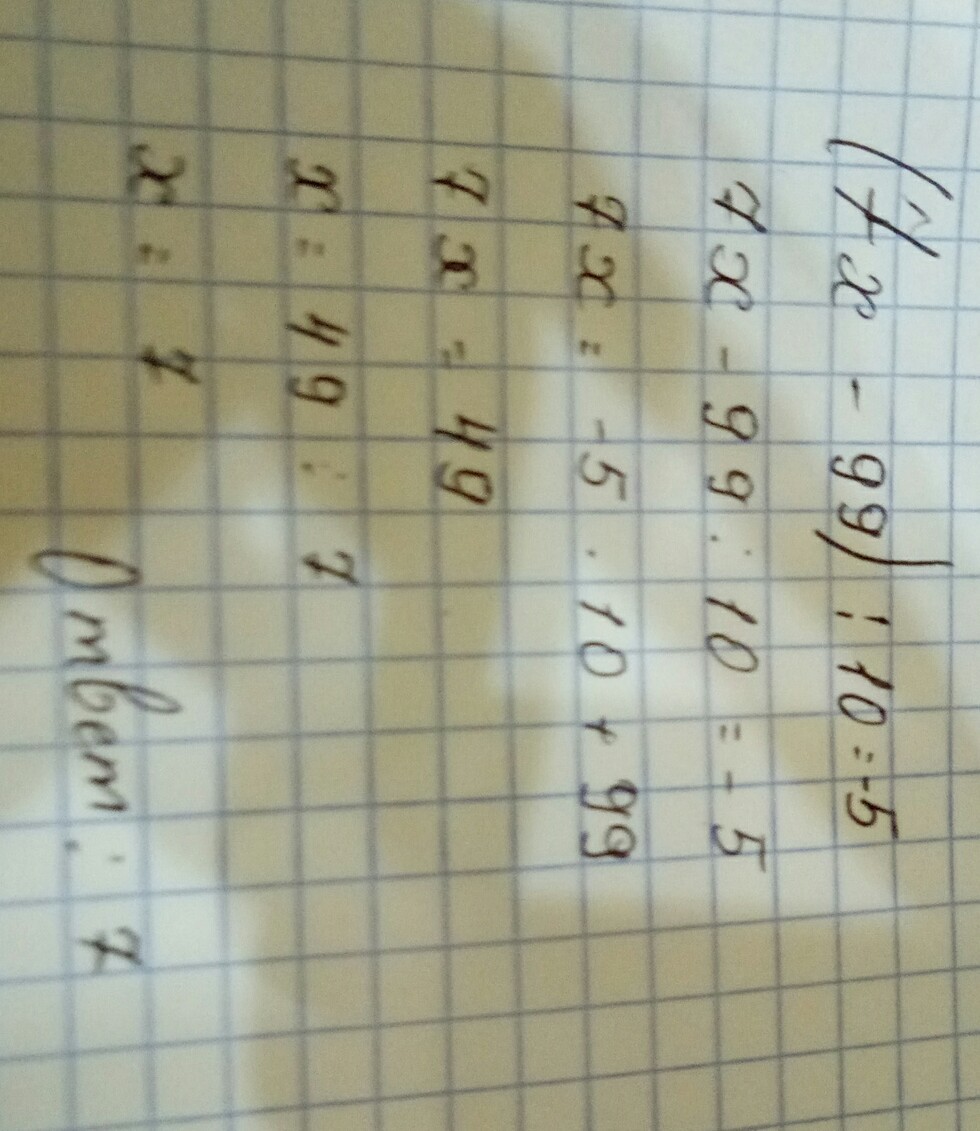 (7x - 99) : 10 = -5
7x - 99 : 10 = - 5
7x = -5 · 10 + 99
7x = 49
x = 49 : 7
x = 7
Ответ: 7